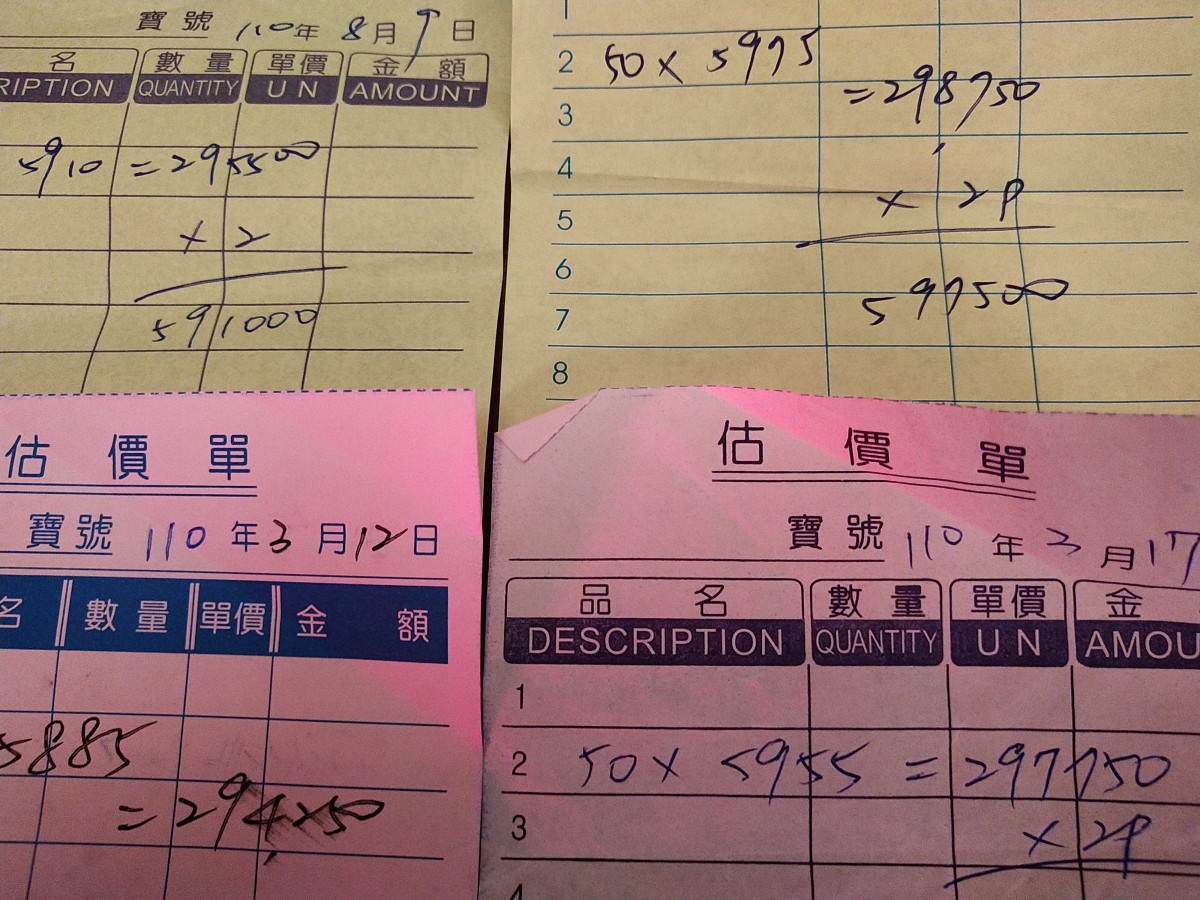 寶號 110年 8月9日
名 數量 單價 金額
RIPTION QUANTITY U N AMOUNT
5910 = 295500
× 2
591000
1
2 50 × 5975
= 298750
3
4
× 2P
5
6
597500
7
8
估價單
寶號 110年3月12日
名 數量 單價 金額
5885
= 294250
估價單
寶號 110年3月17
品名 數量 單價 金
DESCRIPTION QUANTITY U N AMOU
1
2 50 × 5955 = 297750
3 × 2P
4